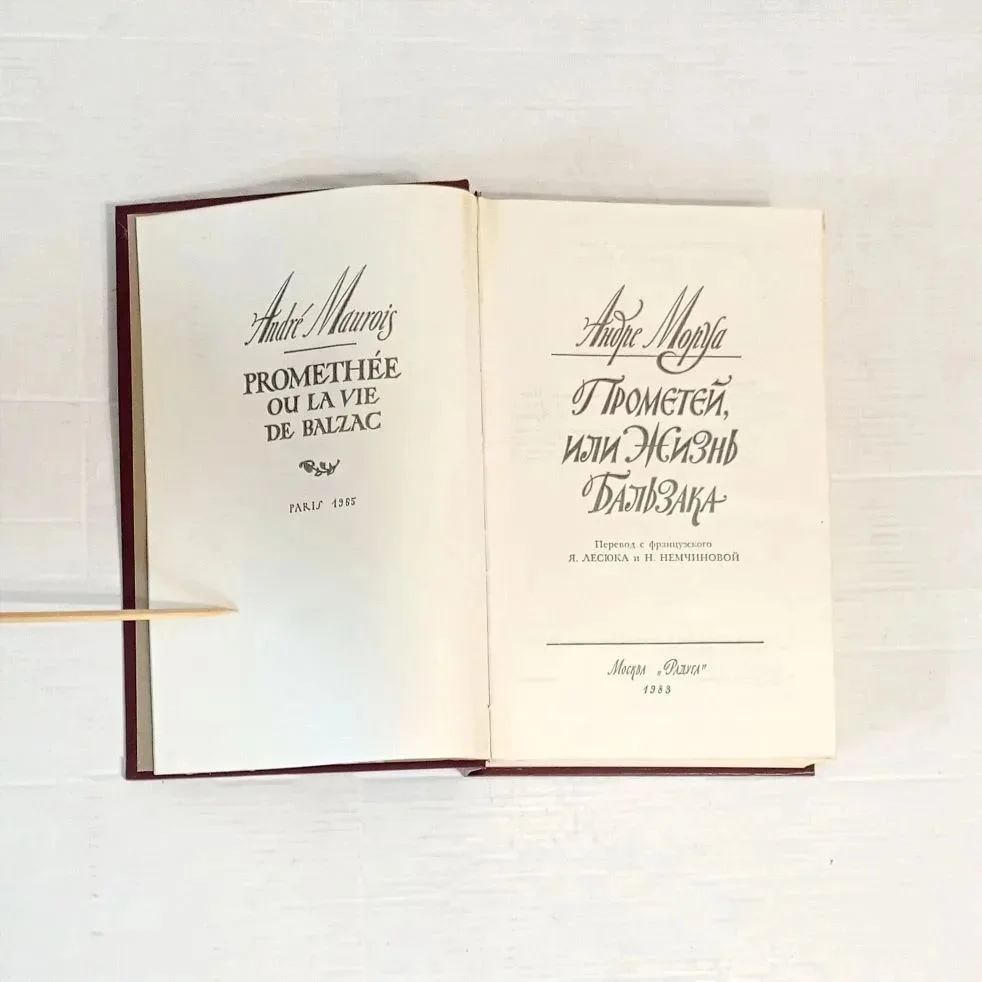 André Maurois
PROMETHÉE
OU LA VIE
DE BALZAC
PARIS 1965
Андре Моруа
Прометей,
или Жизнь
Бальзака
Перевод с французского
Я. ЛЕСЮКА и Н. НЕМЧИНОВОЙ
Москва „Радуга"
1983